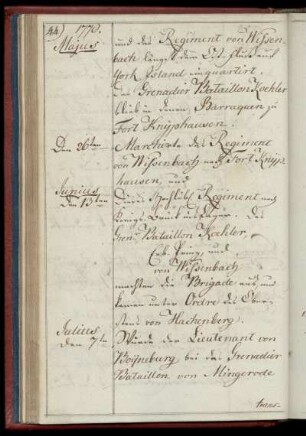 44) 1778.
Majus
und das Regiment von Wissen-
bach längst dem East-Fluss auf
York Island einquartirt.
Das Grenadier Bataillon Koehler
blieb in denen Barraquen zu
Fort Knÿphausen.
Den 26ten
Marchirte das Regiment
von Wissenbach nach Fort Knÿp
hausen, und
Junius
den 13ten
Regiment nach
Kings Das
Gren. Bataillon Koehler
Erb. Prinz, und
von Wissenbach
machten die Brigade aus und
kamen unter Ordre des Ober-
stens von Hachenberg.
Julius
den 7te
Wurde der Lieutenant von
Boÿneburg bei das Grenadier
Bataillon von Mingerode